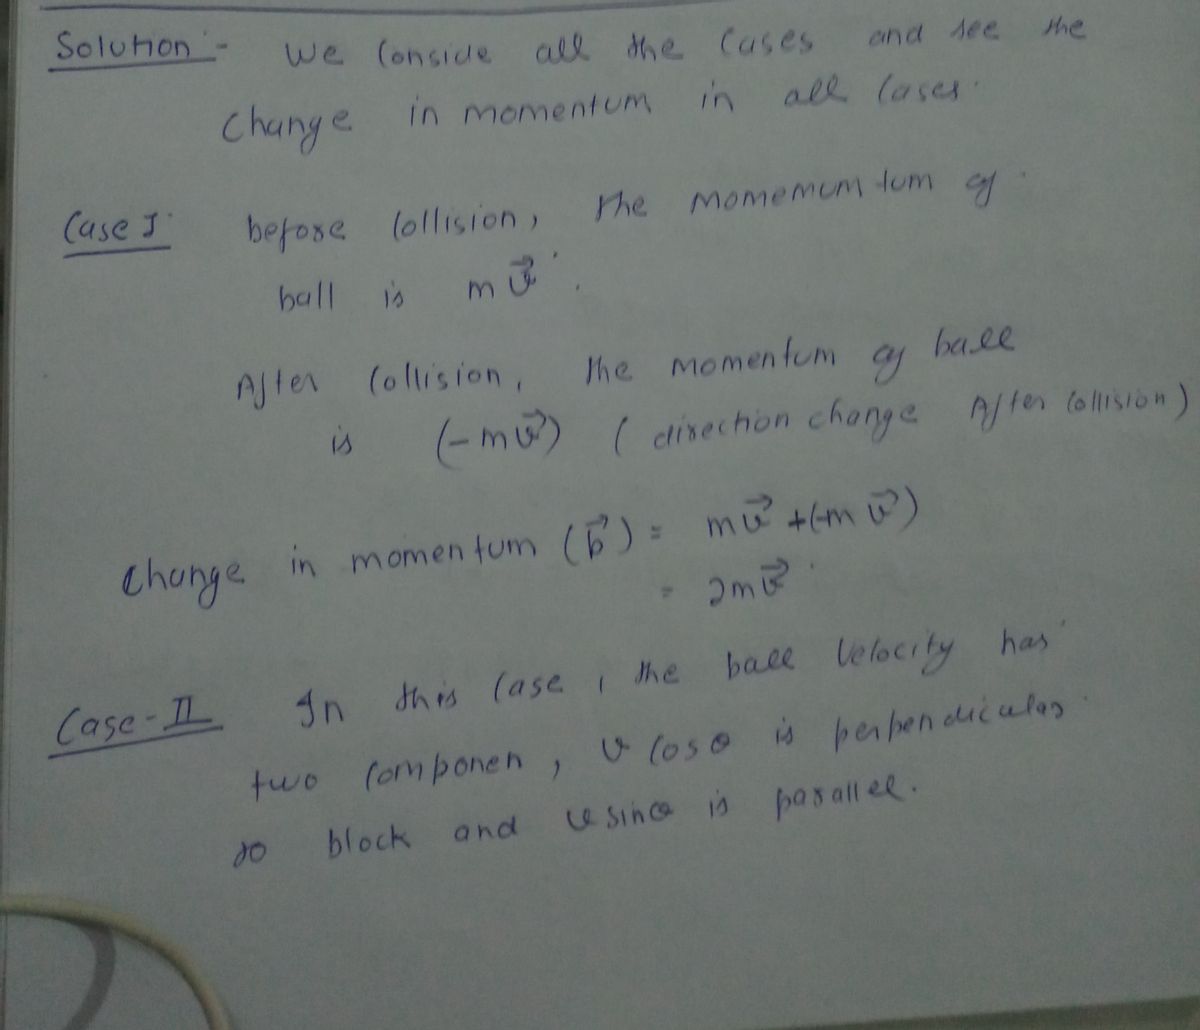 Solution :- We Conside all the Cases and see the
Change in momentum in all Cases.
Case I. before Collision, the momemum tum of
ball is m v⃗.
After Collision, the momentum of ball
is (-m v⃗) ( direction change After Collision)
Change in momentum (p⃗) = m v⃗ +(-m v⃗)
= 2m v⃗.
Case-II In this Case, the ball Velocity has
two Componen, v Cos θ is perpendicular
to block and v sin θ is parallel.